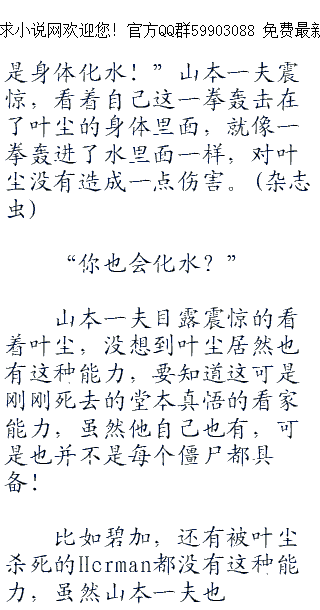 求小说网欢迎您！官方QQ群59903088 免费最新
是身体化水！”山本一夫震
惊，看着自己这一拳轰击在
了叶尘的身体里面，就像一
拳轰进了水里面一样，对叶
尘没有造成一点伤害。(杂志
虫)
“你也会化水？”
山本一夫目露震惊的看
着叶尘，没想到叶尘居然也
有这种能力，要知道这可是
刚刚死去的堂本真悟的看家
能力，虽然他自己也有，可
是也并不是每个僵尸都具
备！
比如碧加，还有被叶尘
杀死的Herman都没有这种能
力，虽然山本一夫也